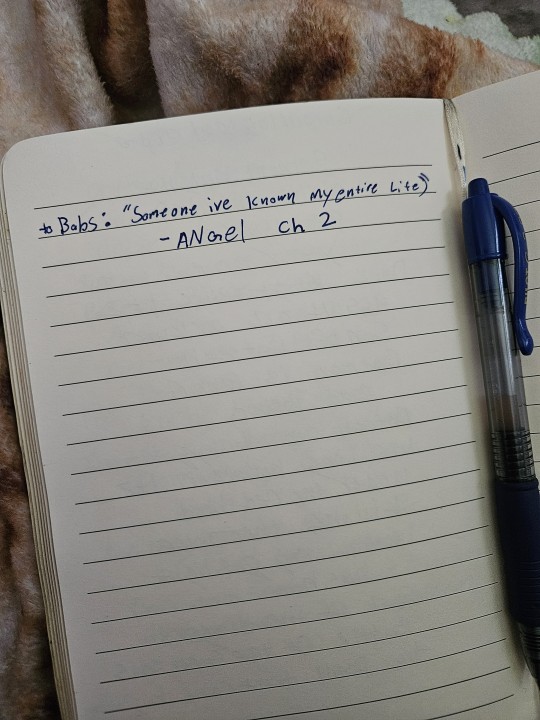 to Babs: "Someone ive known my entire life"
- ANGel ch 2